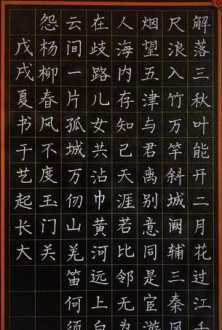 解落三秋叶能开二月花过江
尺浪入竹万竿斜城阙辅三秦
烟望五津与君离别意同是宦
人海内存知己天涯若比邻无为
在歧路儿女共沾巾黄河远上白
云间一片孤城万仞山羌笛何须
怨杨柳春风不度玉门关
戊戌夏书于艺起长大